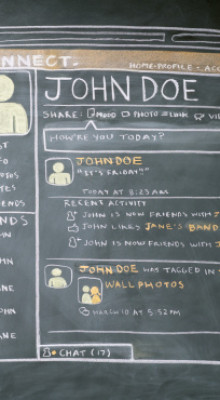 NNECT.
HOME-PROFILE- ACC
JOHN DOE
SHARE: MOOD PHOTO LINK VI
HOW'RE YOU TODAY?
JOHN DOE
"IT'S FRIDAY"
TODAY AT 8:23 AM
RECENT ACTIVITY
JOHN IS NOW FRIENDS WITH J
JOHN LIKES JANE'S BAND
JOHN IS NOW FRIENDS WITH J
ENDS
JOHN DOE WAS TAGGED IN
WALL PHOTOS
MARCH 10 AT 5:52 PM
ANE
CHAT (17)